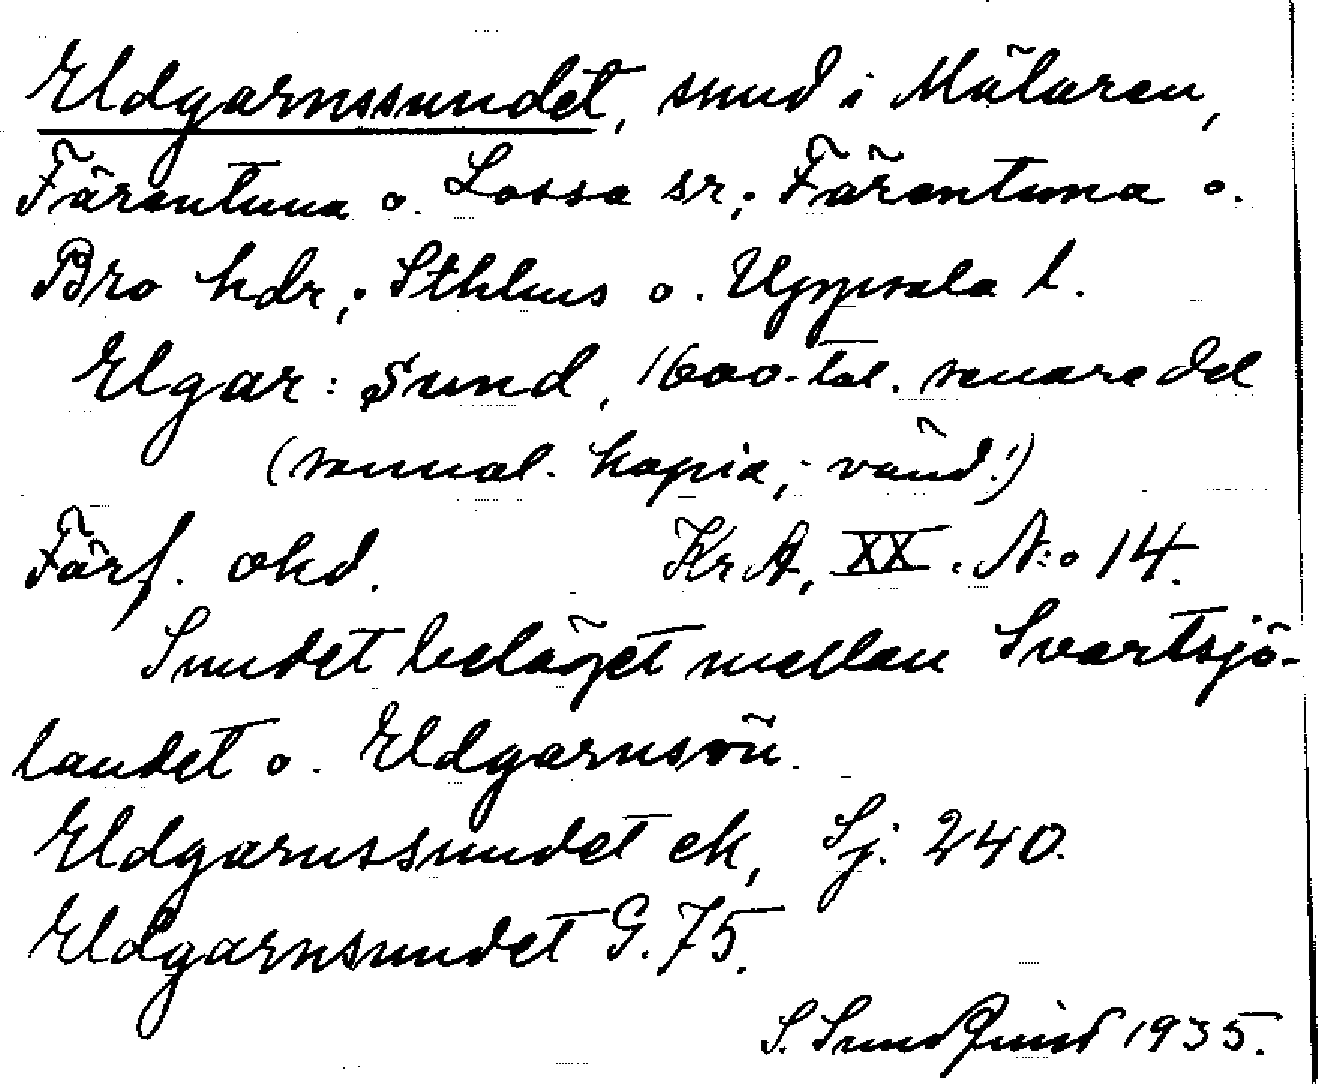 Eldgarnssundet, sund i Mälaren,
Färentuna o. Lossa sr; Färentuna o.
Bro hdr; Sthlms o. Uppsala l.
Elgar: Sund, 1600-tal. senare del
(samal. kopia; vänd!)
Färf. okd. KrA, XX. N:o 14.
Sundet beläget mellan Svartsjö-
landet o. Eldgarnsön.
Eldgarnssundet ek, Sj. 240.
Eldgarnsundet G. 75.
S. Sundquist 1935.